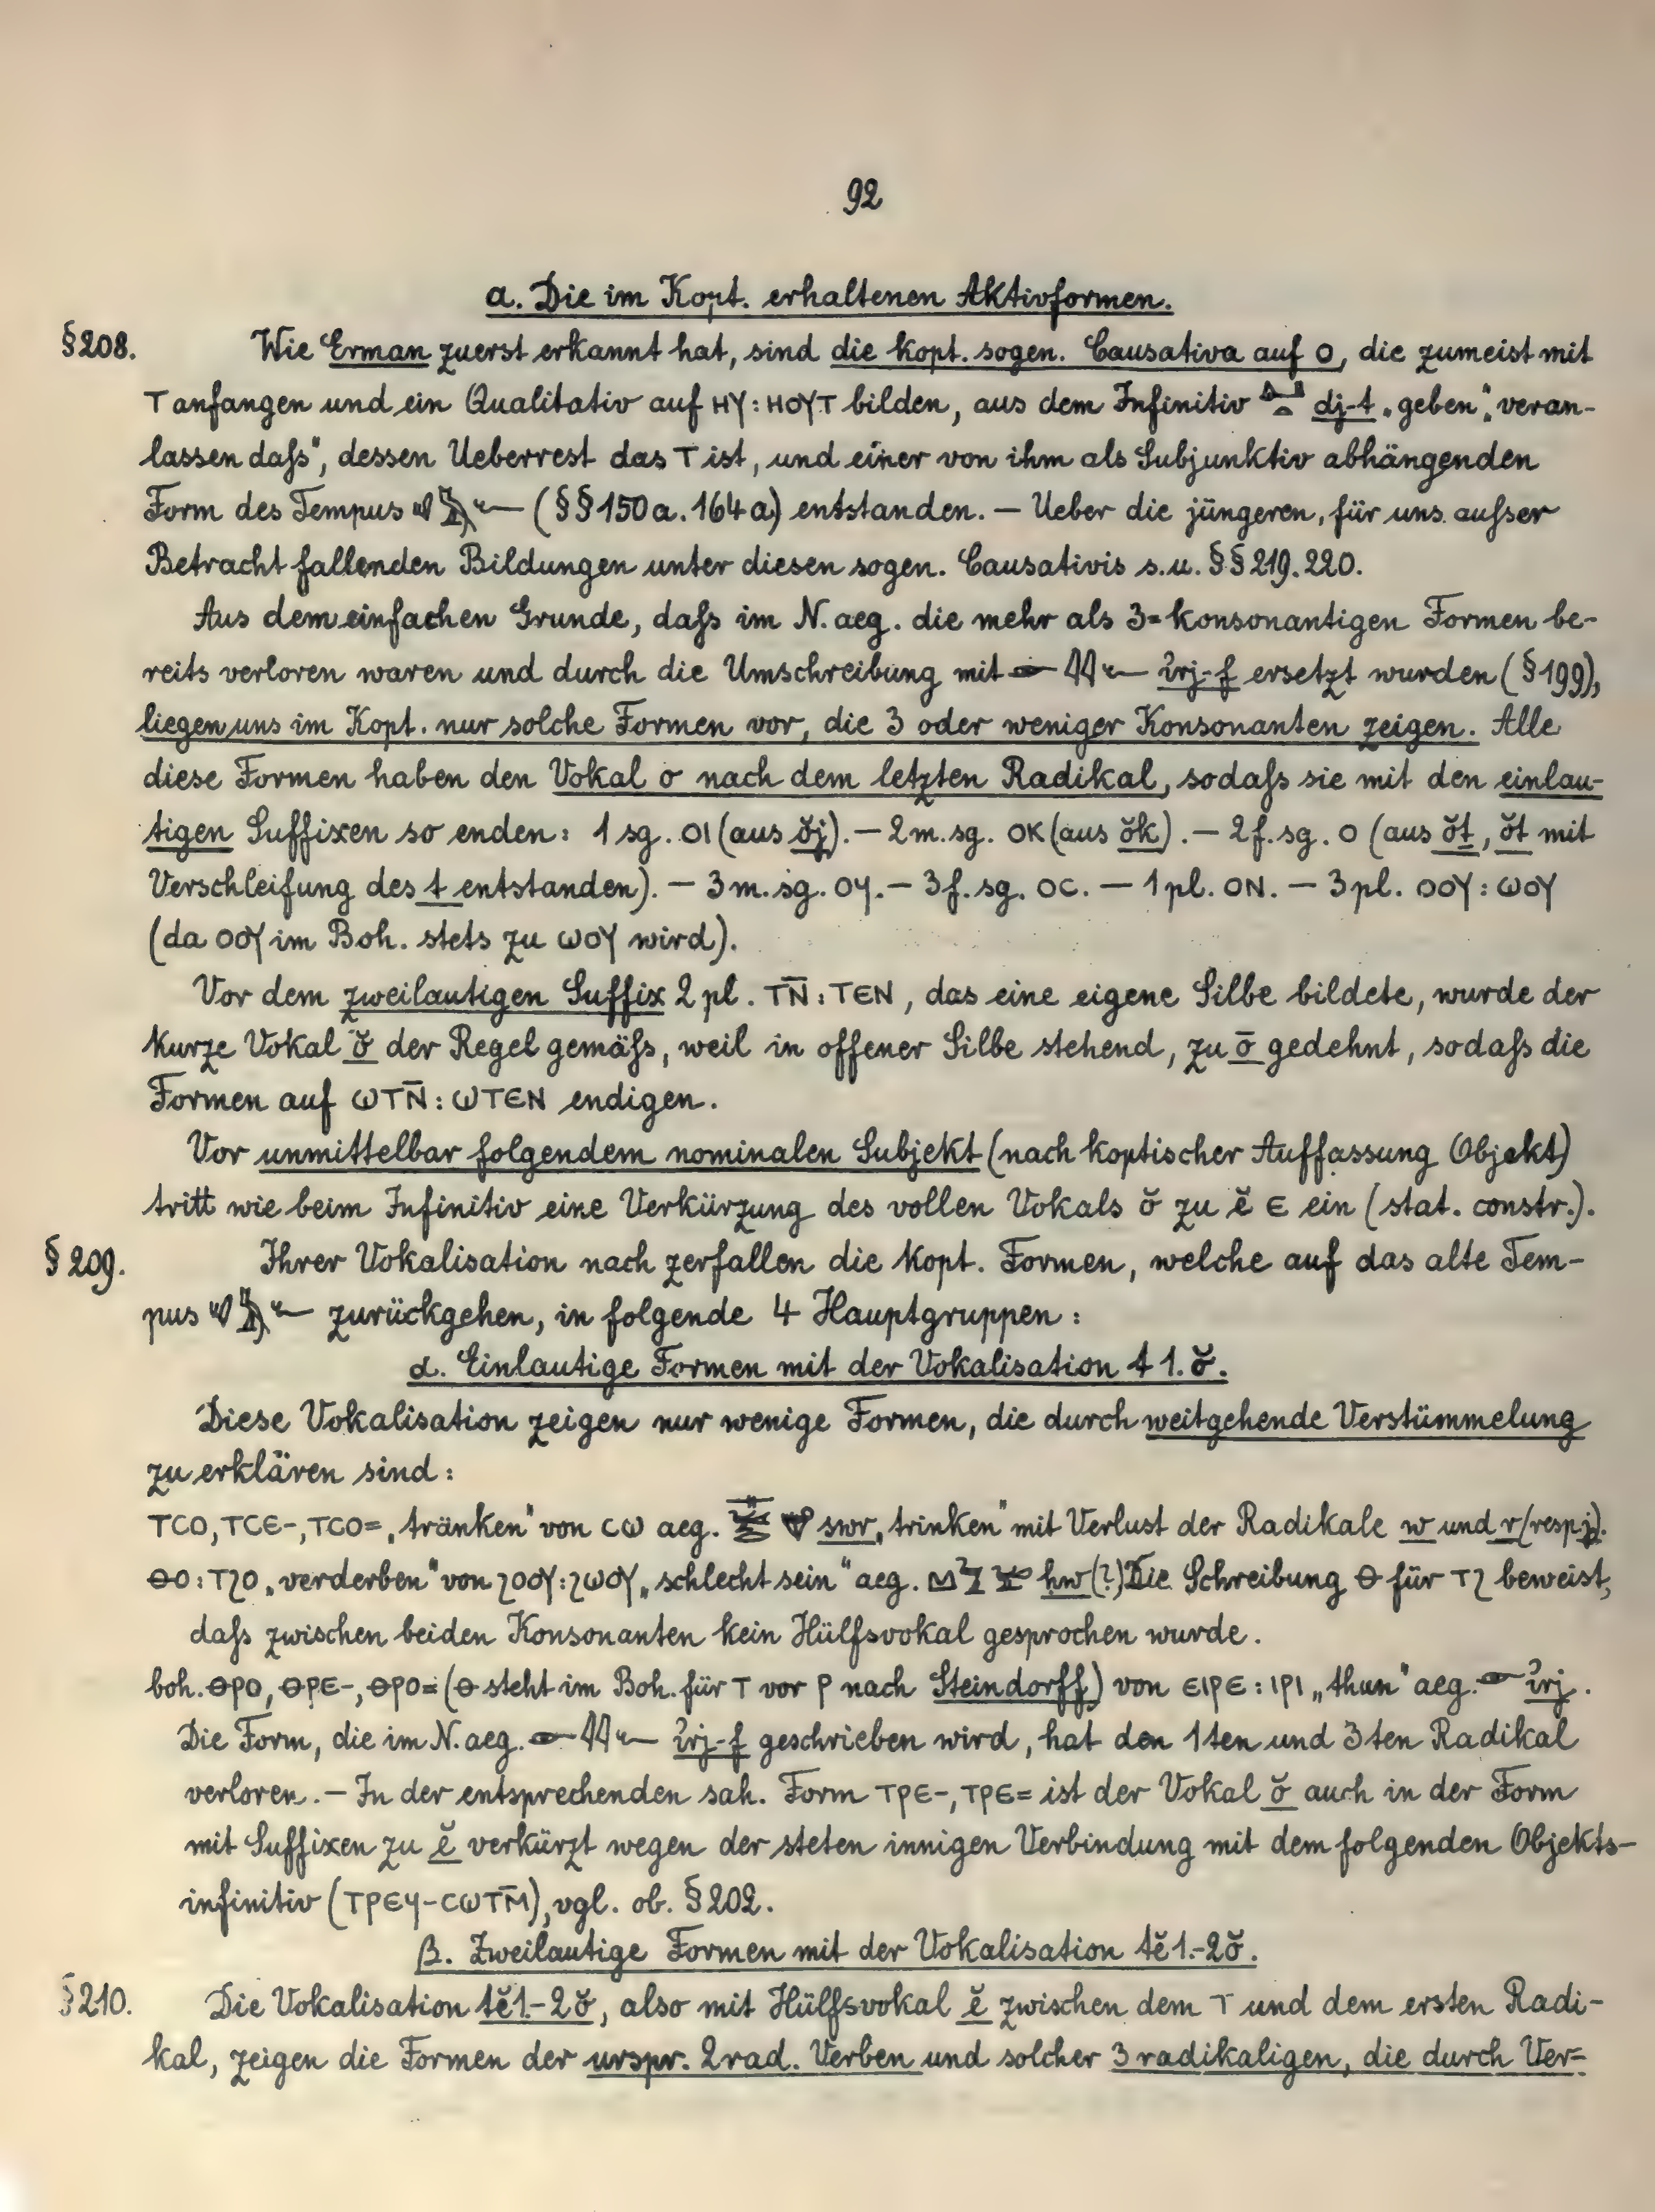 92
a. Die im Kopt. erhaltenen Aktivformen.
§208. Wie Erman zuerst erkannt hat, sind die kopt. sogen. Causativa auf ⲟ, die zumeist mit
ⲧ anfangen und ein Qualitativ auf ⲏⲩ : ⲏⲟⲩⲧ bilden, aus dem Infinitiv dj-t „geben“, „veran-
lassen daſs“, dessen Ueberrest das ⲧ ist, und einer von ihm als Subjunktiv abhängenden
Form des Tempus (§§150a. 164a) entstanden. — Ueber die jüngeren, für uns auſser
Betracht fallenden Bildungen unter diesen sogen. Causativis s.u. §§219.220.
Aus dem einfachen Grunde, daſs im N.aeg. die mehr als 3=konsonantigen Formen be-
reits verloren waren und durch die Umschreibung mit ꞽrj-f ersetzt wurden (§199),
liegen uns im Kopt. nur solche Formen vor, die 3 oder weniger Konsonanten zeigen. Alle
diese Formen haben den Vokal o nach dem letzten Radikal, sodaſs sie mit den einlau-
tigen Suffixen so enden: 1 sg. ⲟⲓ (aus ŏj). — 2 m. sg. ⲟⲕ (aus ŏk). — 2 f. sg. ⲟ (aus ŏṯ, ŏt mit
Verschleifung des t entstanden). — 3 m. sg. ⲟϥ. — 3 f. sg. ⲟⲥ. — 1 pl. ⲟⲛ. — 3 pl. ⲟⲟⲩ : ⲱⲟⲩ
(da ⲟⲟⲩ im Boh. stets zu ⲱⲟⲩ wird).
Vor dem zweilautigen Suffix 2 pl. ⲧⲛ̄ : ⲧⲉⲛ, das eine eigene Silbe bildete, wurde der
kurze Vokal ŏ der Regel gemäſs, weil in offener Silbe stehend, zu ō gedehnt, sodaſs die
Formen auf ⲱⲧⲛ̄ : ⲱⲧⲉⲛ endigen.
Vor unmittelbar folgendem nominalen Subjekt (nach koptischer Auffassung Objekt)
tritt wie beim Infinitiv eine Verkürzung des vollen Vokals ŏ zu ĕ ⲉ ein (stat. constr.).
§209. Ihrer Vokalisation nach zerfallen die kopt. Formen, welche auf das alte Tem-
pus zurückgehen, in folgende 4 Hauptgruppen:
α. Einlautige Formen mit der Vokalisation t 1. ŏ.
Diese Vokalisation zeigen nur wenige Formen, die durch weitgehende Verstümmelung
zu erklären sind:
ⲧⲥⲟ, ⲧⲥⲉ-, ⲧⲥⲟ= „tränken“ von ⲥⲱ aeg. swr „trinken“ mit Verlust der Radikale w und r (resp. j).
ⲑⲟ : ⲧϩⲟ „verderben“ von ϩⲟⲟⲩ : ϩⲱⲟⲩ „schlecht sein“ aeg. hw (?) Die Schreibung ⲑ für ⲧϩ beweist,
daſs zwischen beiden Konsonanten kein Hülfsvokal gesprochen wurde.
boh. ⲑⲣⲟ, ⲑⲣⲉ-, ⲑⲣⲟ= (ⲑ steht im Boh. für ⲧ vor ⲣ nach Steindorff) von ⲉⲓⲣⲉ : ⲓⲣⲓ „thun“ aeg. ꞽrj.
Die Form, die im N.aeg. ꞽrj-f geschrieben wird, hat den 1ten und 3ten Radikal
verloren. — In der entsprechenden sah. Form ⲧⲣⲉ-, ⲧⲣⲉ= ist der Vokal ŏ auch in der Form
mit Suffixen zu ĕ verkürzt wegen der steten innigen Verbindung mit dem folgenden Objekts-
infinitiv (ⲧⲣⲉϥ-ⲥⲱⲧⲙ̄), vgl. ob. §202.
β. Zweilautige Formen mit der Vokalisation tĕ1.-2ŏ.
§210. Die Vokalisation tĕ1.-2ŏ, also mit Hülfsvokal ĕ zwischen dem ⲧ und dem ersten Radi-
kal, zeigen die Formen der urspr. 2rad. Verben und solcher 3radikaligen, die durch Ver-